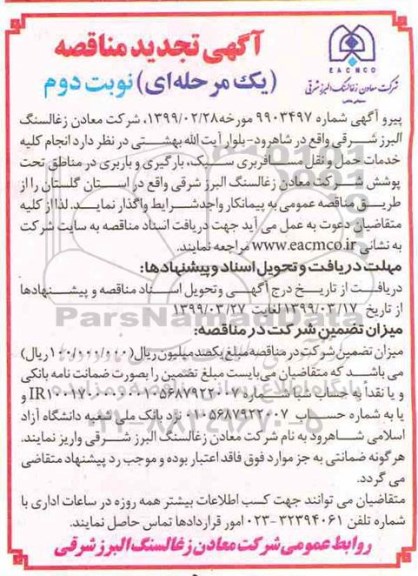 آگهی تجدید مناقصه
(یک مرحله‌ای) نوبت دوم
EACMCO
شرکت معادن زغالسنگ البرز شرقی
پیرو آگهی شماره ۹۹۰۳۴۹۷ مورخه ۱۳۹۹/۰۲/۲۸، شرکت معادن زغالسنگ
البرز شرقی واقع در شاهرود-بلوار آیت الله بهشتی در نظر دارد انجام کلیه
خدمات حمل و نقل، مسافربری سبک، بارگیری و باربری در مناطق تحت
پوشش شرکت معادن زغالسنگ البرز شرقی واقع در استان گلستان را از
طریق مناقصه عمومی به پیمانکار واجد شرایط واگذار نماید. لذا از کلیه
متقاضیان دعوت به عمل می آید جهت دریافت اسناد مناقصه به سایت شرکت
به نشانی www.eacmco.ir مراجعه نمایند.
مهلت دریافت و تحویل اسناد و پیشنهادها:
دریافت از تاریخ درج آگهی و تحویل اسناد مناقصه و پیشنهادها
از تاریخ ۱۳۹۹/۰۳/۱۷ لغایت ۱۳۹۹/۰۳/۲۷
میزان تضمین شرکت در مناقصه:
میزان تضمین شرکت در مناقصه مبلغ یکصد میلیون ریال (۱۰۰/۰۰۰/۰۰۰ ریال)
می باشد که متقاضیان می بایست مبلغ تضمین را بصورت ضمانت نامه بانکی
و یا نقداً به حساب شبا شماره
یا به شماره حساب ۰۱۰۵۶۸۷۹۲۲۰۰۷ نزد بانک ملی شعبه دانشگاه آزاد
اسلامی شاهرود به نام شرکت معادن زغالسنگ البرز شرقی واریز نمایند.
هرگونه ضمانتی به جز موارد فوق فاقد اعتبار بوده و موجب رد پیشنهاد متقاضی
می گردد.
متقاضیان می توانند جهت کسب اطلاعات بیشتر همه روزه در ساعات اداری با
شماره تلفن ۳۲۳۹۴۰۶۱-۰۲۳ امور قراردادها تماس حاصل نمایند.
روابط عمومی شرکت معادن زغالسنگ البرز شرقی
ParsNamadData